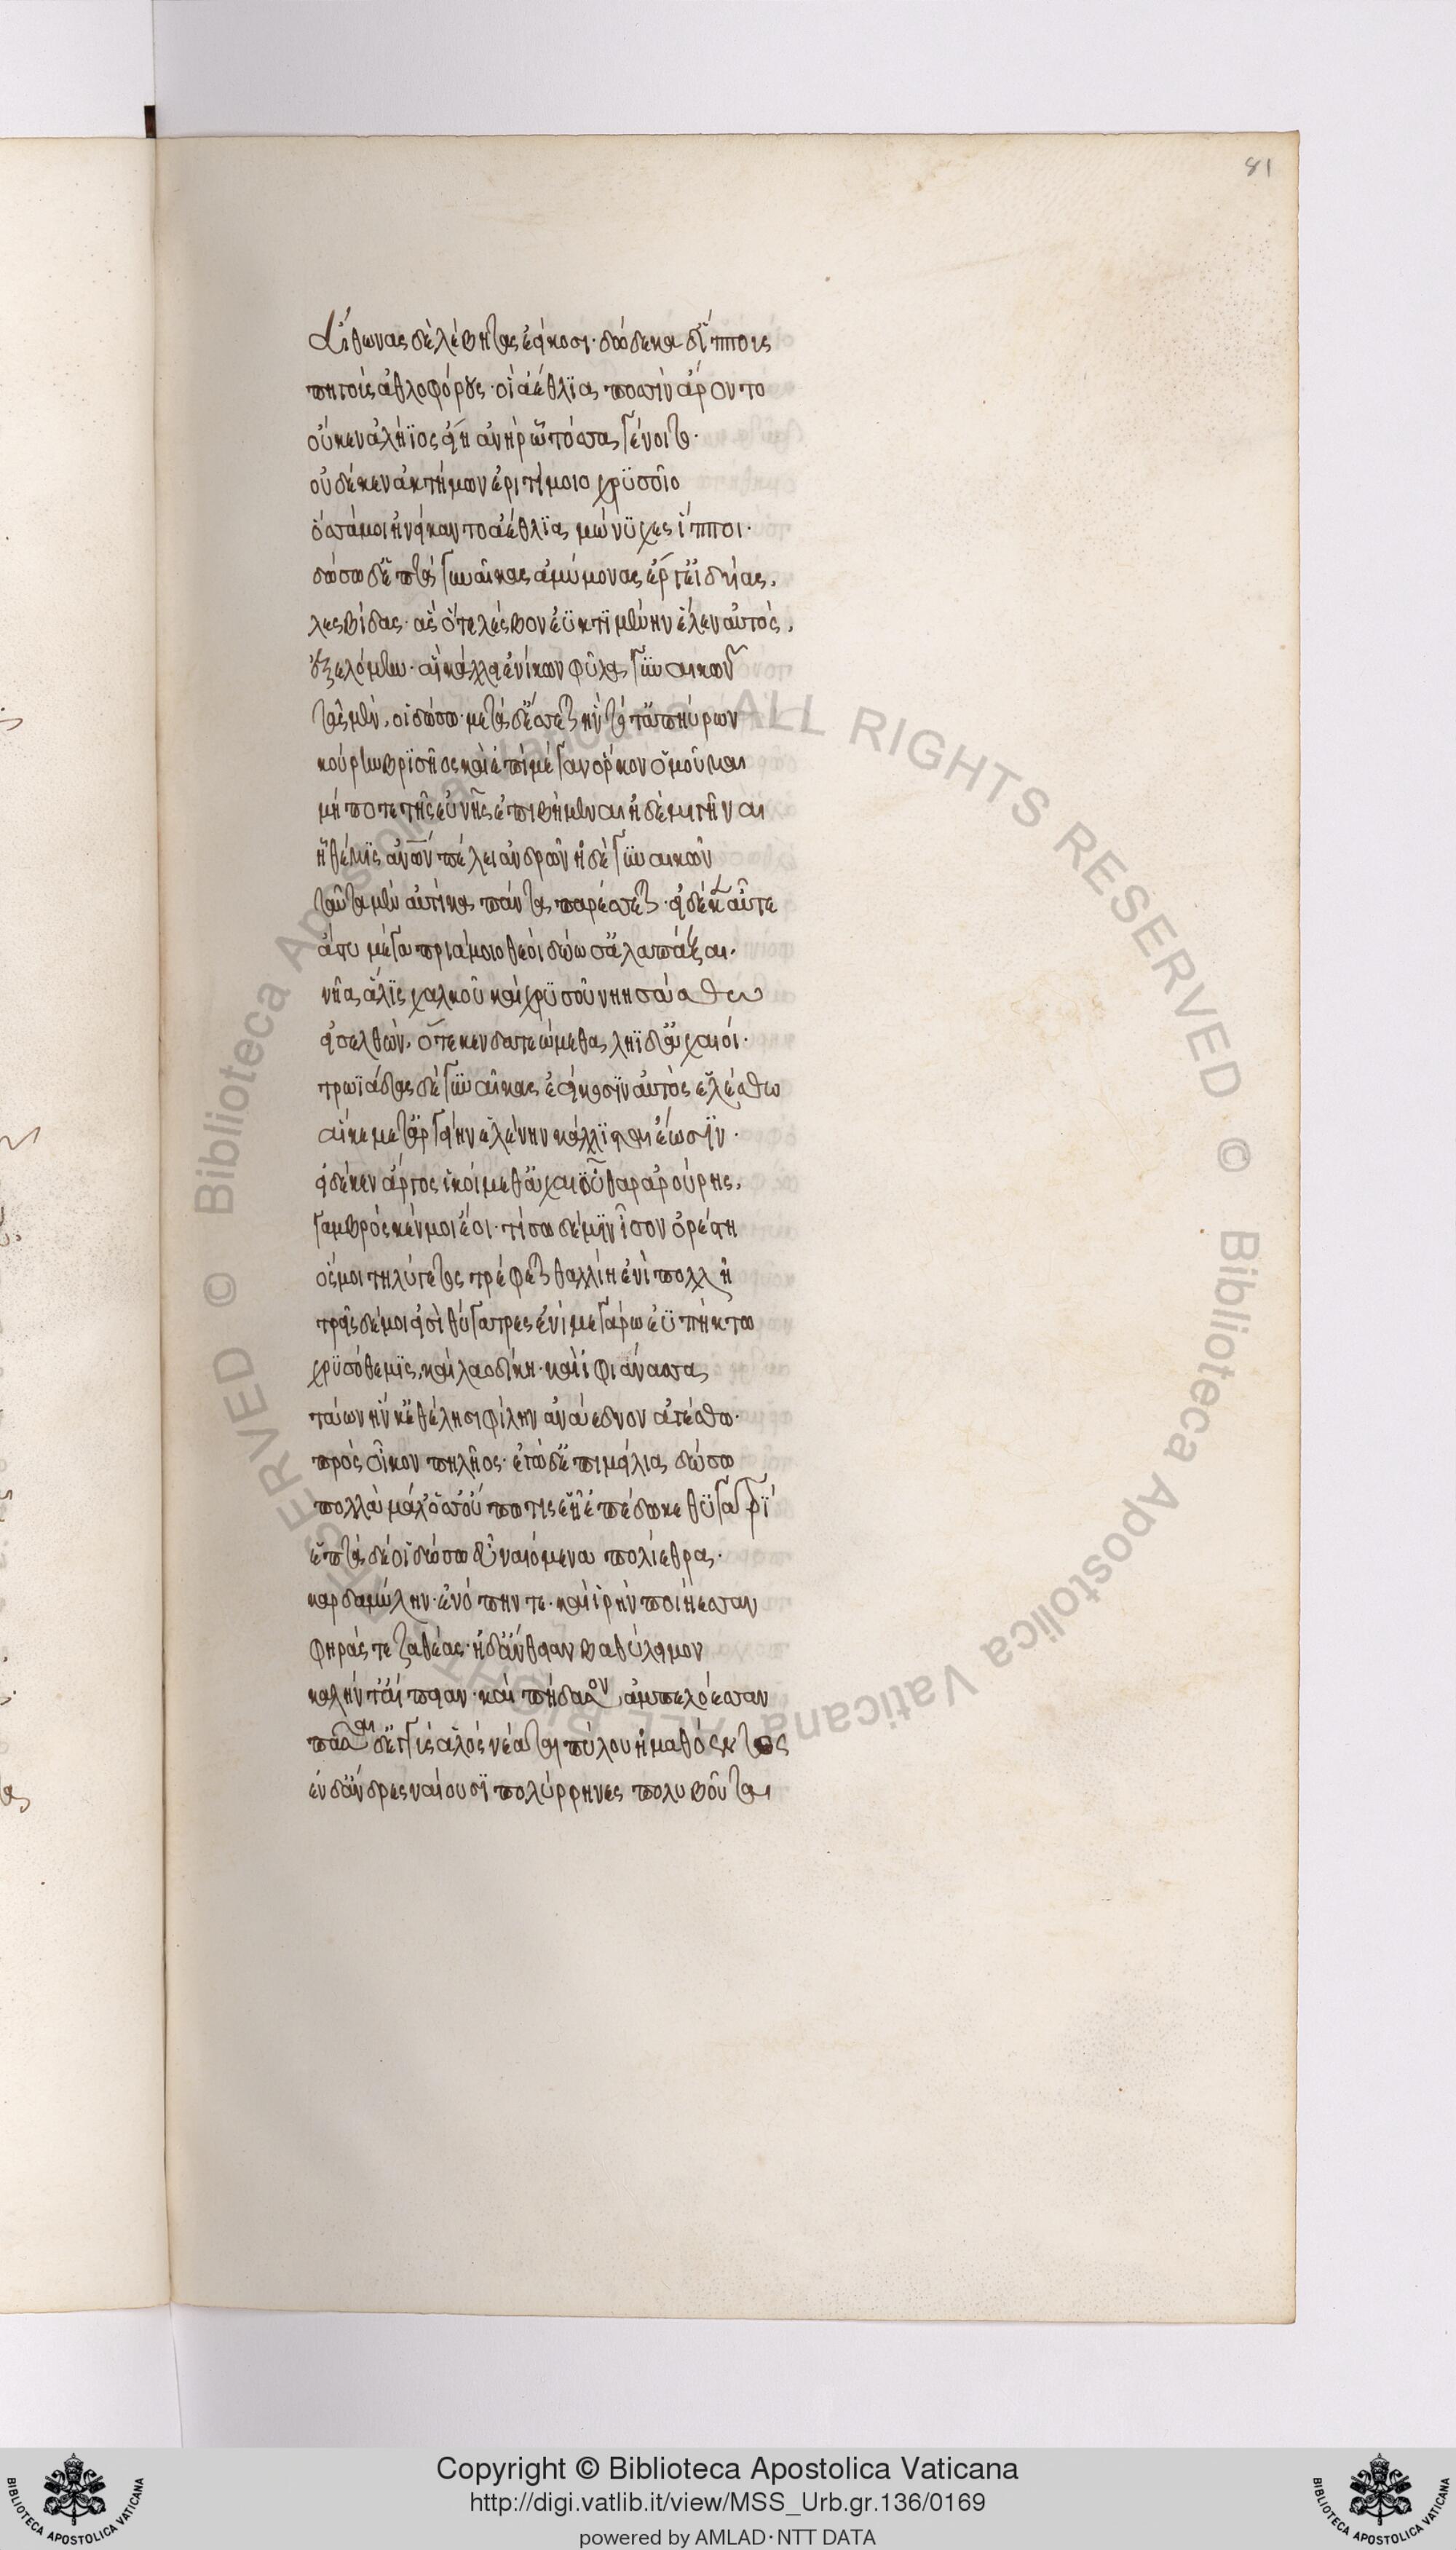 81
Αἴθωνας δὲ λέβητας ἐείκοσι· δώδεκα δ' ἵππους
πηγοὺς ἀθλοφόρους· οἳ ἀέθλια ποσσὶν ἄροντο
οὔ κεν ἀλήϊος εἴη ἀνὴρ ᾧ τόσσα γένοιτο·
οὐδέ κεν ἀκτήμων ἐριτίμοιο χρυσοῖο
ὅσσά μοι ἠνείκαντο ἀέθλια μώνυχες ἵπποι·
δώσω δ' ἑπτὰ γυναῖκας ἀμύμονας ἔργ' εἰδυίας,
λεσβίδας· ἃς ὅτε λέσβον ἐϋκτιμένην ἕλεν αὐτὸς,
ἐξελόμην· αἳ κάλλει ἐνίκων φῦλα γυναικῶν
τὰς μέν, οἱ δώσω· μετὰ δ' ἔσσεται ἣν τότ' ἀπηύρων
κούρην βρισῆος καὶ ἐπὶ μέγαν ὅρκον ὀμοῦμαι
μή ποτε τῆς εὐνῆς ἐπιβήμεναι ἠδὲ μιγῆναι
ἣ θέμις ἀνθρώπων πέλει ἀνδρῶν ἠδὲ γυναικῶν
ταῦτα μὲν αὐτίκα πάντα παρέσσεται· εἰ δέ κεν αὖτε
ἄστυ μέγα πριάμοιο θεοὶ δώωσ' ἀλαπάξαι·
νῆα ἅλις χαλκοῦ καὶ χρυσοῦ νηησάσθω
εἰσελθών, ὅτε κεν δατεώμεθα ληΐδ' ἀχαιοί·
τρωϊάδας δὲ γυναῖκας ἐείκοσιν αὐτὸς ἑλέσθω
αἵ κε μετ' ἀργείην ἑλένην κάλλισται ἔωσιν·
εἰ δέ κεν ἄργος ἱκοίμεθ' ἀχαιϊκὸν οὖθαρ ἀρούρης,
γαμβρός κέν μοι ἔοι· τίσω δέ μιν ἶσον ὀρέστῃ
ὅς μοι τηλύγετος τρέφεται θαλίῃ ἐνὶ πολλῇ
τρεῖς δέ μοι εἰσὶ θύγατρες ἐνὶ μεγάρῳ ἐϋπήκτῳ
χρυσόθεμις, καὶ λαοδίκη· καὶ ἰφιάνασσα
τάων ἥν κ' ἐθέλῃσι φίλην ἀνάεδνον ἀγέσθω·
πρὸς οἶκον πηλῆος· ἐγὼ δ' ἐπιμείλια δώσω
πολλὰ μάλ' ὅσσ' οὔ πώ τις ἑῇ ἐπέδωκε θυγατρί
ἑπτὰ δέ οἱ δώσω εὖ ναιόμενα πτολίεθρα·
καρδαμύλην· ἐνόπην τε· καὶ ἱρὴν ποιήεσσαν
φηράς τε ζαθέας· ἠδ' ἄνθειαν βαθύλειμον
καλήν τ' αἴπειαν· καὶ πήδασον, ἀμπελόεσσαν
πᾶσαι δ' ἐγγὺς ἁλός νέαται πύλου ἠμαθόεντος
ἐν δ' ἄνδρες ναίουσι πολύρρηνες πολυβοῦται
Copyright © Biblioteca Apostolica Vaticana
http://digi.vatlib.it/view/MSS_Urb.gr.136/0169
powered by AMLAD·NTT DATA